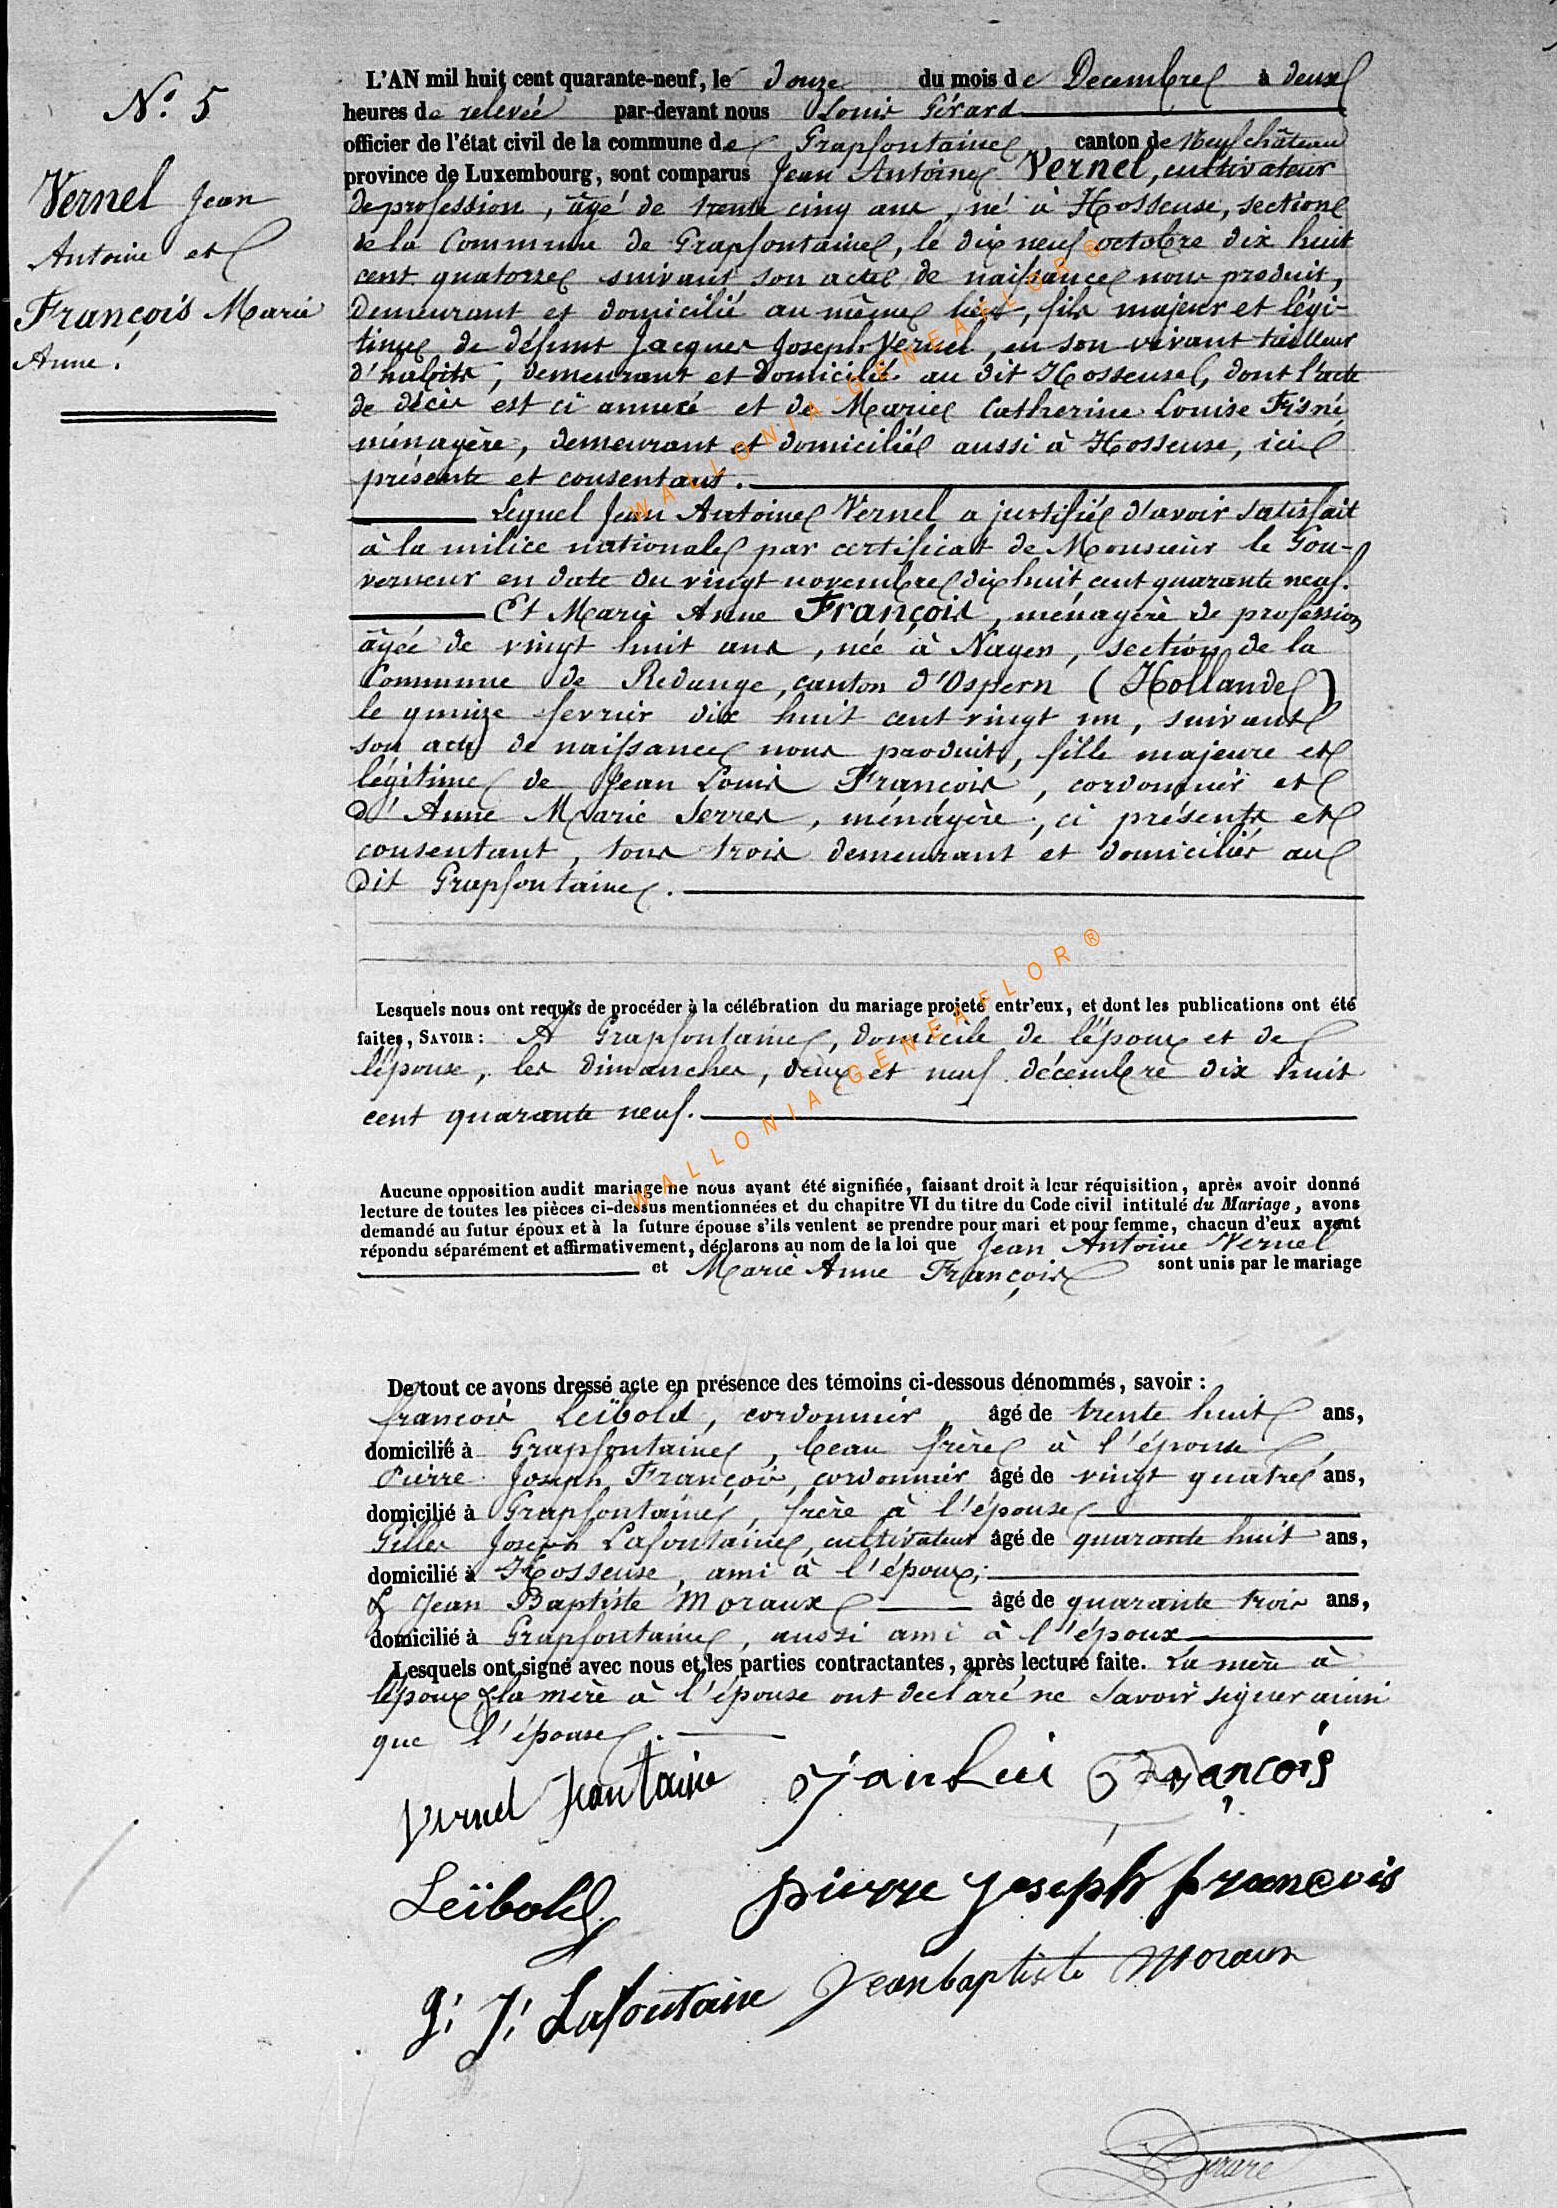 N.° 5
Vernel Jean
Antoine et
François Marie
Anne.
L'AN mil huit cent quarante-neuf, le douze du mois de Decembre à deux
heures de relevée par-devant nous Louis Gérard
officier de l'état civil de la commune de Grapfontaine, canton de Neufchâteau
province de Luxembourg, sont comparus Jean Antoine Vernel, cultivateur
de profession, âgé de trente cinq ans, né à Hosseuse, section
de la Commune de Grapfontaine, le dix neuf octobre dix huit
cent quatorze suivant son acte de naissance nous produit,
demeurant et domicilié au même lieu, fils majeur et légi-
time de défunt Jacques Joseph Vernel, en son vivant tailleur
d'habits, demeurant et domicilié au dit Hosseuse, dont l'acte
de décès est ci annexé et de Marie Catherine Louise Frisné
ménagère, demeurant et domiciliée aussi à Hosseuse, ici
présente et consentant.
Lequel Jean Antoine Vernel a justifié d'avoir satisfait
à la milice nationale par certificat de Monsieur le Gou-
verneur en date du vingt novembre dix huit cent quarante neuf.
Et Marie Anne François, ménagère de profession
âgée de vingt huit ans, née à Nagen, section de la
Commune de Redange, canton d'Ospern (Hollande)
le quinze fevrier dix huit cent vingt un, suivant
son acte de naissance nous produit, fille majeure et
légitime de Jean Louis François, cordonnier et
d'Anne Marie Serres, ménágère, ci présents et
consentant, tous trois demeurant et domiciliés au
dit Grapfontaine.
Lesquels nous ont requis de procéder à la célébration du mariage projeté entr'eux, et dont les publications ont été
faites, SAVOIR: A Grapfontaine, domicile de l'époux et de
l'épouse, les dimanches, deux et neuf décembre dix huit
cent quarante neuf.
Aucune opposition audit mariage ne nous ayant été signifiée, faisant droit à leur réquisition, après avoir donné
lecture de toutes les pièces ci-dessus mentionnées et du chapitre VI du titre du Code civil intitulé du Mariage, avons
demandé au futur époux et à la future épouse s'ils veulent se prendre pour mari et pour femme, chacun d'eux ayant
répondu séparément et affirmativement, déclarons au nom de la loi que Jean Antoine Vernel
et Marie Anne François sont unis par le mariage
De tout ce avons dressé acte en présence des témoins ci-dessous dénommés, savoir:
françois Leïbold, cordonnier, âgé de trente huit ans,
domicilié à Grapfontaine, beau frère à l'épouse,
Pierre Joseph François, cordonnier âgé de vingt quatre ans,
domicilié à Grapfontaine, frère à l'épouse
Gilles Joseph Lafontaine, cultivateur âgé de quarante huit ans,
domicilié à Hosseuse, ami à l'époux;
& Jean Baptiste Moraux âgé de quarante trois ans,
domicilié à Grapfontaine, aussi ami à l'époux
Lesquels ont signé avec nous et les parties contractantes, après lecture faite. La mère à
l'époux & la mère à l'épouse ont declaré ne savoir signer ainsi
que l'épouse.
Vernel Jean
François
Leïbold
pierre joseph francois
g: J: Lafontaine
Jeanbaptiste Moraux
Gerard
WALLONIA-GENEAFLOR®
WALLONIA-GENEAFLOR®